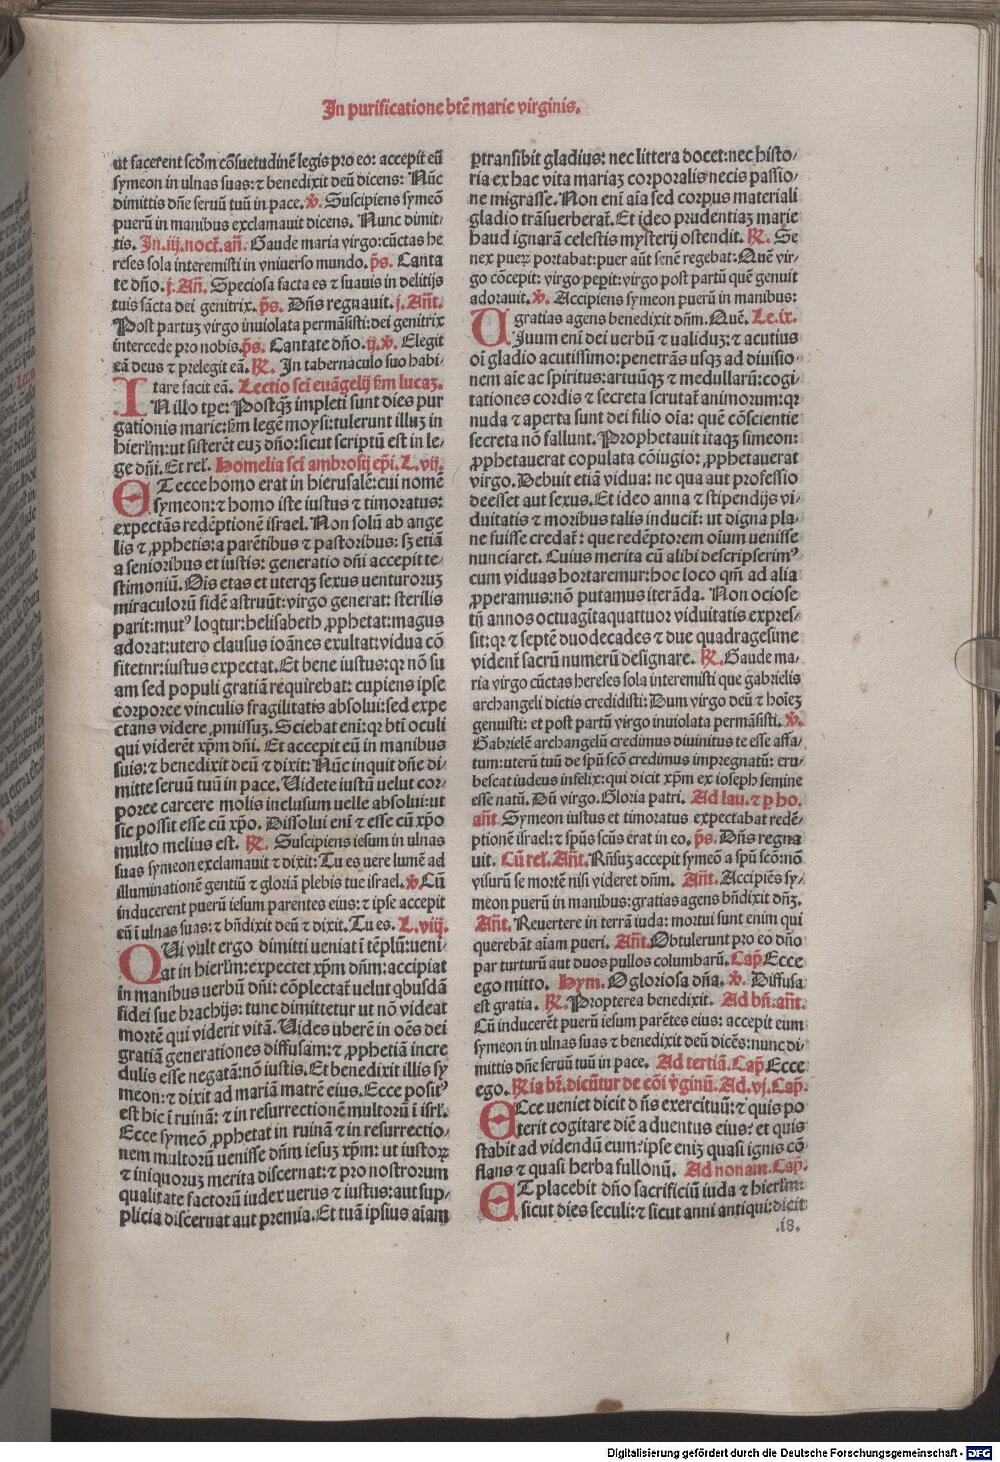 In purificatione btē marie virginis.
ut facerent scd̄m cōsuetudinē legis pro eo: accepit eū
symeon in ulnas suas: ⁊ benedixit deū dicens: Nūc
dimittis dn̄e seruū tuū in pace. ℣. Suscipiens symeō
puerū in manibus exclamauit dicens. Nunc dimit⸗
tis. In .iij. noct̄. an̄. Gaude maria virgo: cūctas he
reses sola interemisti in vniuerso mundo. ps̄. Canta
te dn̄o. j. An̄. Speciosa facta es ⁊ suauis in delitijs
tuis sācta dei genitrix. ps̄. Dn̄s regnauit. j. An̄t.
Post partuꝫ virgo inuiolata permāsisti: dei genitrix
intercede pro nobis. ps̄. Cantate dn̄o. ij. ℣. Elegit
eā deus ⁊ prelegit eā. ℟. In tabernaculo suo habi⸗
tare facit eā. Lectio scī euāgelij sm̄ lucaꝫ.
IN illo tp̄e: Postqꝫ impleti sunt dies pur
gationis marie: sm̄ legē moysi: tulerunt illuꝫ in
hierlm̄: ut sisterēt euꝫ dn̄o: sicut scriptū est in le⸗
ge dn̄i. Et rel̄. Homelia scī ambrosij ep̄i. L. vij.
ET ecce homo erat in hierusalē: cui nomē
symeon: ⁊ homo iste iustus ⁊ timoratus:
expectās redēptionē israel. Non solū ab ange
lis ⁊ ꝓphetis: a parētibus ⁊ pastoribus: sꝫ etiā
a senioribus et iustis: generatio dn̄i accepit te⸗
stimoniū. Oīs etas et uterqꝫ sexus uenturoruꝫ
miraculorū fidē astruūt: virgo generat: sterilis
parit: mutꝰ loqtur: helisabeth ꝓphetat: magus
adorat: utero clausus ioānes exultat: vidua cō
fitetur: iustus expectat. Et bene iustus: qꝛ nō su
am sed populi gratiā requirebat: cupiens ipse
corporee vinculis fragilitatis absolui: sed expe
ctans videre ꝓmissuꝫ. Sciebat eni: qꝛ btī oculi
qui viderēt xp̄m dn̄i. Et accepit eū in manibus
suis: ⁊ benedixit deū ⁊ dixit: Nūc inquit dn̄e di⸗
mitte seruū tuū in pace. Uidete iustū uelut cor⸗
poree carcere molis inclusum uelle absolui: ut
sic possit esse cū xp̄o. Dissolui enī ⁊ esse cū xp̄o
multo melius est. ℟. Suscipiens iesum in ulnas
suas symeon exclamauit ⁊ dixit: Tu es uere lumē ad
illuminationē gentiū ⁊ gloriā plebis tue israel. ℣. Cū
inducerent puerū iesum parentes eius: ⁊ ipse accepit
eū ī ulnas suas: ⁊ bn̄dixit deū ⁊ dixit. Tu es. L. viij.
QUi vult ergo dimitti ueniat ī tēplū: ueni⸗
at in hierlm̄: expectet xp̄m dn̄m: accipiat
in manibus uerbū dn̄i: cōplectat̄ uelut qbusdā
fidei sue brachijs: tunc dimittetur ut nō videat
mortē qui viderit vitā. Uides uberē in oēs dei
gratiā generationes diffusam: ⁊ ꝓphetiā incre
dulis esse negatā: nō iustis. Et benedixit illis sy
meon: ⁊ dixit ad mariā matrē eius. Ecce positꝰ
est hic ī ruinā: ⁊ in resurrectionē multorū ī isrl̄.
Ecce symeō ꝓphetat in ruinā ⁊ in resurrectio⸗
nem multorū uenisse dn̄m iesuꝫ xp̄m: ut iustoꝝ
⁊ iniquoruꝫ merita discernat: ⁊ pro nostrorum
qualitate factorū iudex uerus ⁊ iustus: aut sup⸗
plicia discernat aut premia. Et tuā ipsius aīam
ꝑtransibit gladius: nec littera docet: nec histo⸗
ria ex hac vita mariaꝫ corporalis necis passio⸗
ne migrasse. Non enī aīa sed corpus materiali
gladio trāsuerberat̄. Et ideo prudentiaꝫ marie
haud ignarā celestis mysterij ostendit. ℟. Se
nex pueꝝ portabat: puer aūt senē regebat: Quē vir⸗
go cōcepit: virgo pepit: virgo post partū quē genuit
adorauit. ℣. Accipiens symeon puerū in manibus:
gratias agens benedixit dn̄m. Quē. Le. ix.
UIuum enī dei uerbū ⁊ ualiduꝫ: ⁊ acutius
oī gladio acutissimo: penetrās usqꝫ ad diuisio⸗
nem aīe ac spiritus: artuūqꝫ ⁊ medullarū: cogi⸗
tationes cordis ⁊ secreta scrutat̄ animorum: qꝛ
nuda ⁊ aperta sunt dei filio oīa: quē cōscientie
secreta nō fallunt. Prophetauit itaqꝫ simeon:
ꝓphetauerat copulata cōiugio: ꝓphetauerat
virgo. Debuit etiā vidua: ne qua aut professio
deesset aut sexus. Et ideo anna ⁊ stipendijs vi⸗
duitatis ⁊ moribus talis inducit̄: ut digna pla⸗
ne fuisse credat̄: que redēptorem oium uenisse
nunciaret. Cuius merita cū alibi descripserimꝰ
cum viduas hortaremur: hoc loco qm̄ ad alia
ꝓperamus: nō putamus iterāda. Non ociose
tij annos octuagītaquattuor viduitatis expres⸗
sit: qꝛ ⁊ septē duodecades ⁊ due quadragesime
vident̄ sacrū numerū designare. ℟. Gaude ma⸗
ria virgo cūctas hereses sola interemisti que gabrielis
archangeli dictis credidisti: Dum virgo deū ⁊ hoīeꝫ
genuisti: et post partū virgo inuiolata permāsisti. ℣.
Gabrielē archangelū credimus diuinitus te esse affa⸗
tum: uterū tuū de spū scō credimus impregnatū: eru⸗
bescat iudeus infelix: qui dicit xp̄m ex ioseph semine
esse natū. Dū virgo. Gloria patri. Ad lau. ⁊ p̲ ho.
an̄t. Symeon iustus et timoratus expectabat redē⸗
ptionē israel: ⁊ spūs scūs erat in eo. ps̄. Dn̄s regna
uit. Cū rel̄. An̄t. Rn̄suꝫ accepit symeō a spū scō: nō
visurū se mortē nisi videret dn̄m. An̄t. Accipiēs sy⸗
meon puerū in manibus: gratias agens bn̄dixit dn̄ꝫ.
An̄t. Reuertere in terrā iuda: mortui sunt enim qui
querebāt aīam pueri. An̄t. Obtulerunt pro eo dn̄o
par turturū aut duos pullos columbarū. Cap̄. Ecce
ego mitto. Hym. O gloriosa dn̄a. ℣. Diffusa
est gratia. ℟. Propterea benedixit. Ad bn̄. an̄t.
Cū inducerēt puerū iesum parētes eius: accepit eum
symeon in ulnas suas ⁊ benedixit deū dicēs: nunc di⸗
mittis dn̄e seruū tuū in pace. Ad tertiā. Cap̄. Ecce
ego. ℟ia br̄. dicūtur de cōi v̄ginū. Ad. vj. Cap̄.
ECce ueniet dicit dn̄s exercituū: ⁊ quis po
terit cogitare diē aduentus eius: et quis
stabit ad videndū eum: ipse eniꝫ quasi ignis cō
flans ⁊ quasi herba fullonū. Ad nonam. Cap̄.
ET placebit dn̄o sacrificiū iuda ⁊ hierlm̄:
sicut dies seculi: ⁊ sicut anni antiqui: dicit
.18.
Digitalisierung gefördert durch die Deutsche Forschungsgemeinschaft - DFG